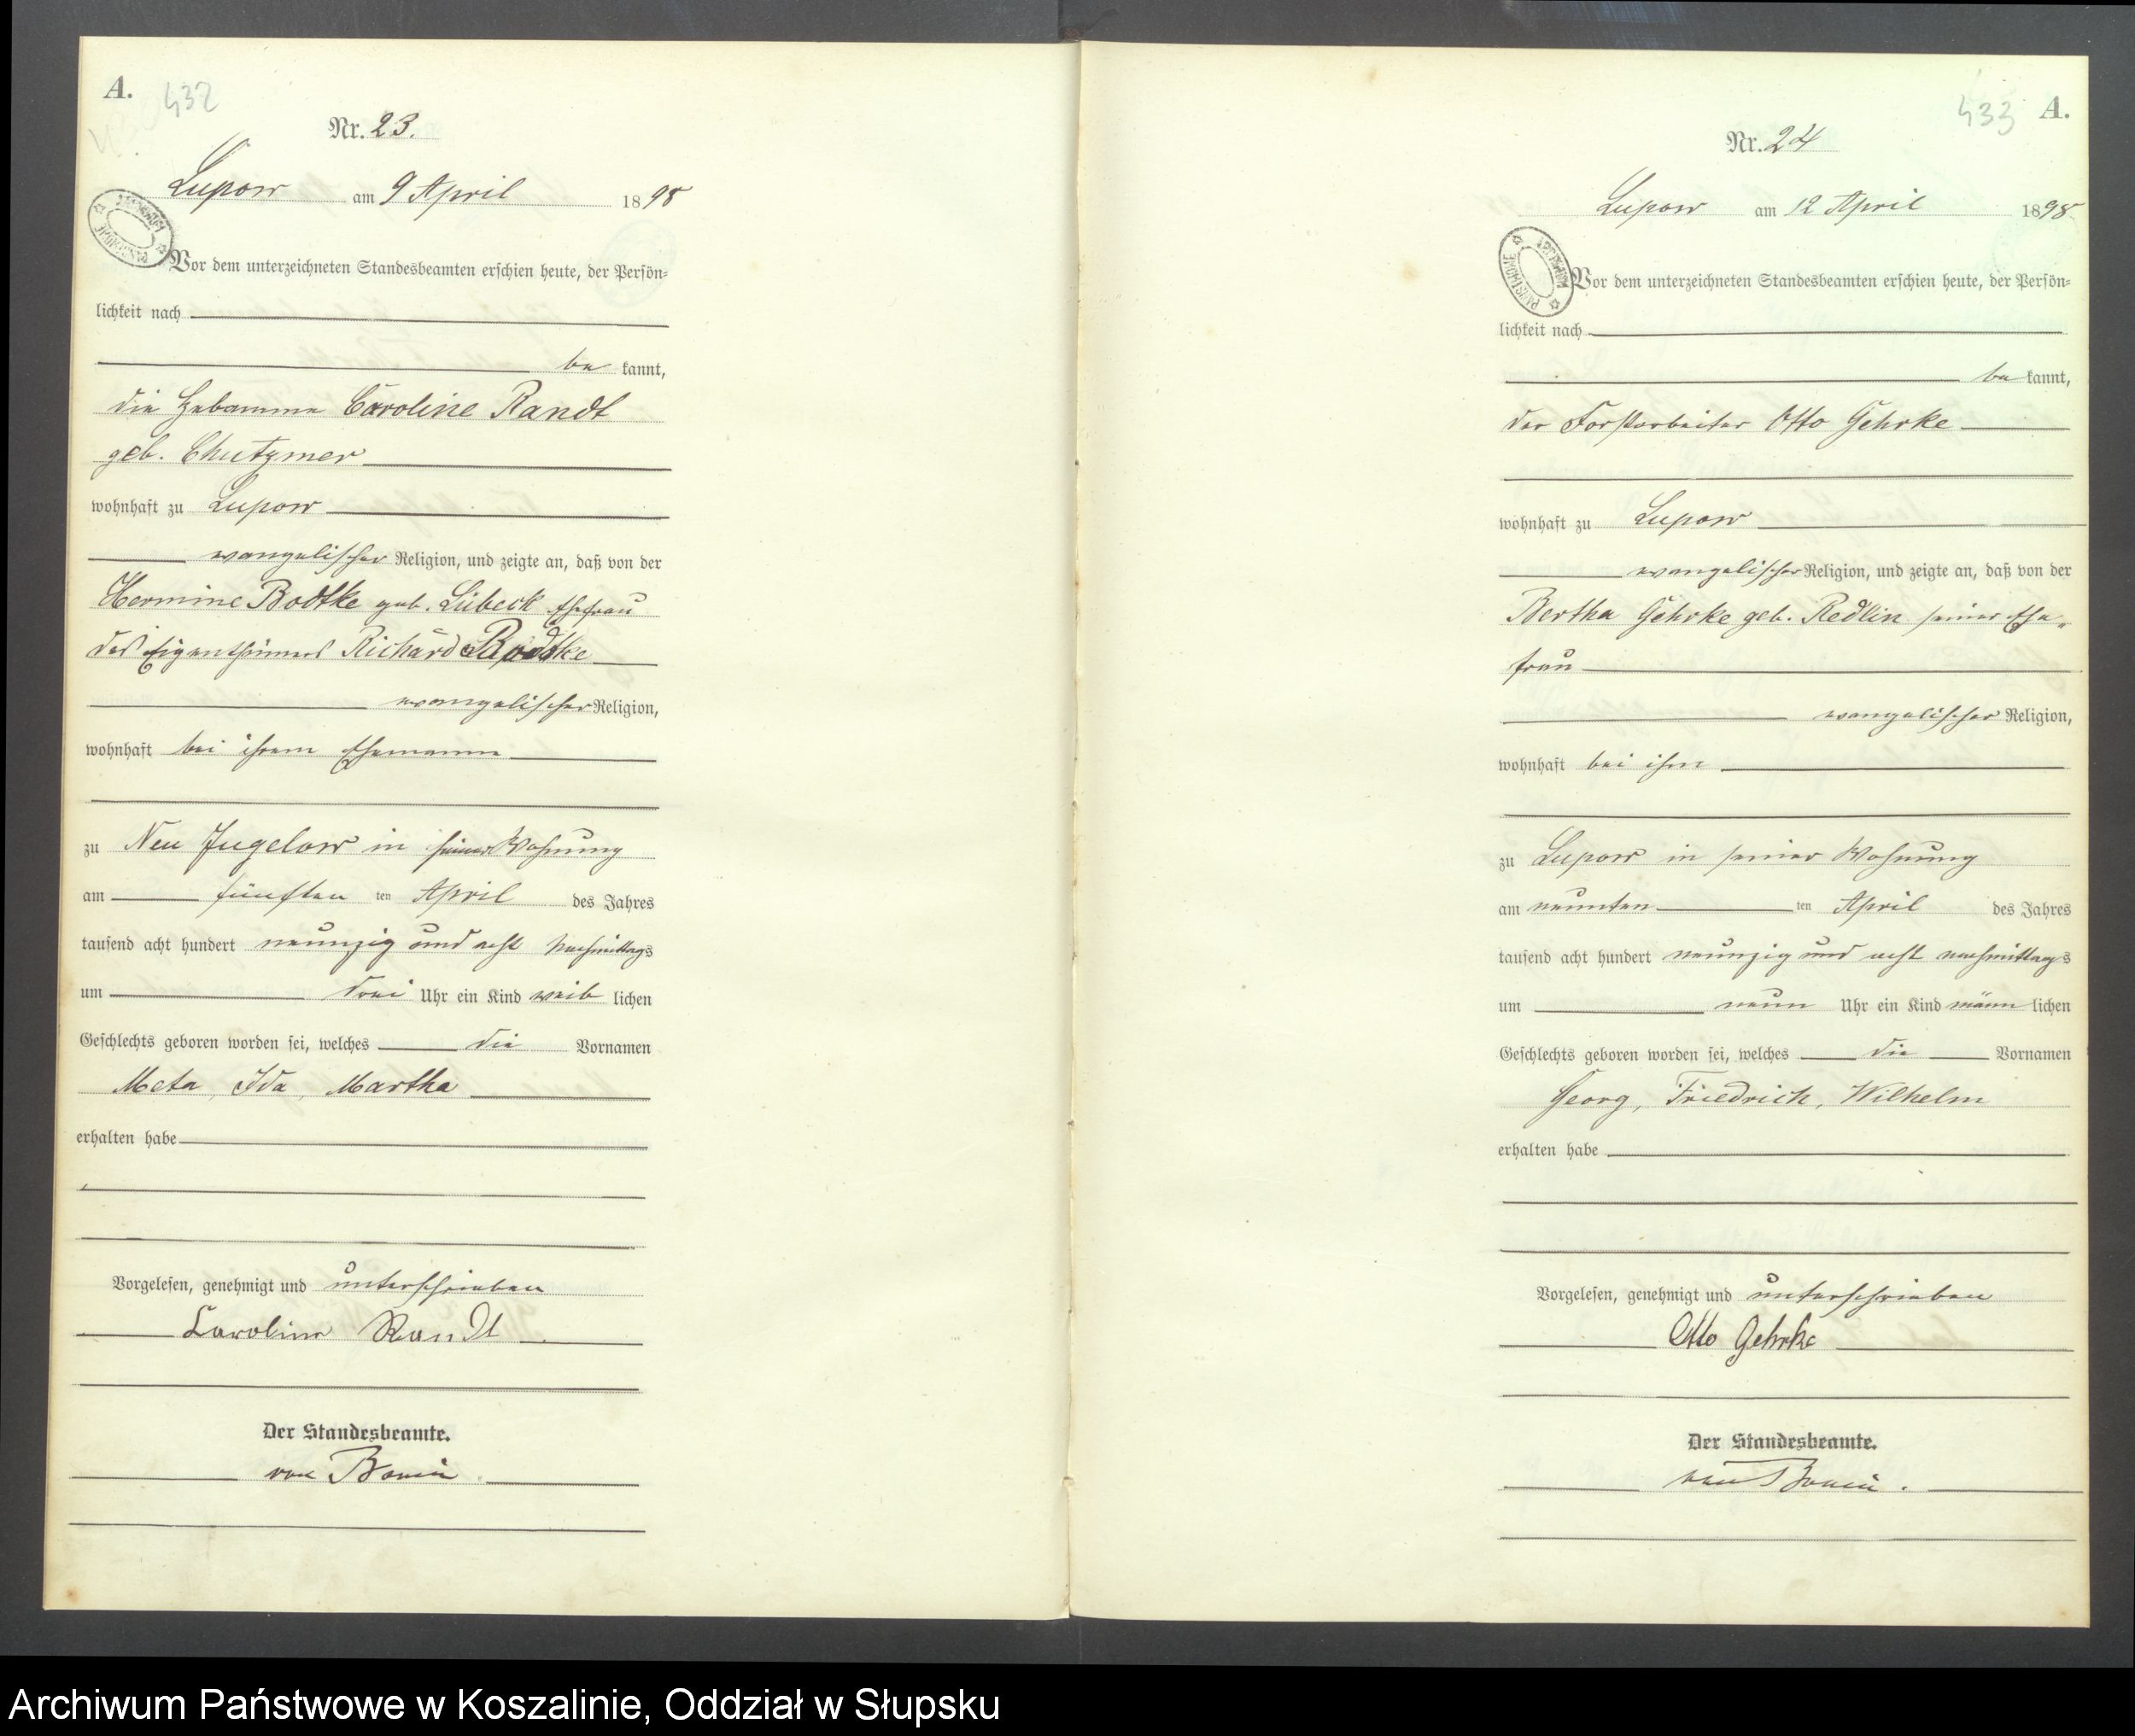 A.
432
Nr. 23.
Lupow am 9 April 1898
ARCHIWUM PAŃSTWOWE
Vor dem unterzeichneten Standesbeamten erschien heute, der Persön-
lichkeit nach
be kannt,
die Hebamme Caroline Randt
geb. Chutzmer
wohnhaft zu Lupow
evangelischer Religion, und zeigte an, daß von der
Hermine Radtke geb. Lübeck Ehefrau
des Eigenthümers Richard Radtke
evangelischer Religion,
wohnhaft bei ihrem Ehemanne
zu Neu Jugelow in seiner Wohnung
am fünften ten April des Jahres
tausend acht hundert neunzig und acht Nachmittags
um drei Uhr ein Kind weib lichen
Geschlechts geboren worden sei, welches die Vornamen
Meta, Ida, Martha
erhalten habe
Vorgelesen, genehmigt und unterschrieben
Caroline Randt
Der Standesbeamte.
von Bonin
433 A.
Nr. 24
Lupow am 12 April 1898
ARCHIWUM PAŃSTWOWE
Vor dem unterzeichneten Standesbeamten erschien heute, der Persön-
lichkeit nach
be kannt,
der Forstarbeiter Otto Gehrke
wohnhaft zu Lupow
evangelischer Religion, und zeigte an, daß von der
Bertha Gehrke geb. Redlin seiner Ehe-
frau
evangelischer Religion,
wohnhaft bei ihm
zu Lupow in seiner Wohnung
am neunten ten April des Jahres
tausend acht hundert neunzig und acht nachmittags
um neun Uhr ein Kind männ lichen
Geschlechts geboren worden sei, welches die Vornamen
Georg, Friedrich, Wilhelm
erhalten habe
Vorgelesen, genehmigt und unterschrieben
Otto Gehrke
Der Standesbeamte.
von Bonin.
Archiwum Państwowe w Koszalinie, Oddział w Słupsku